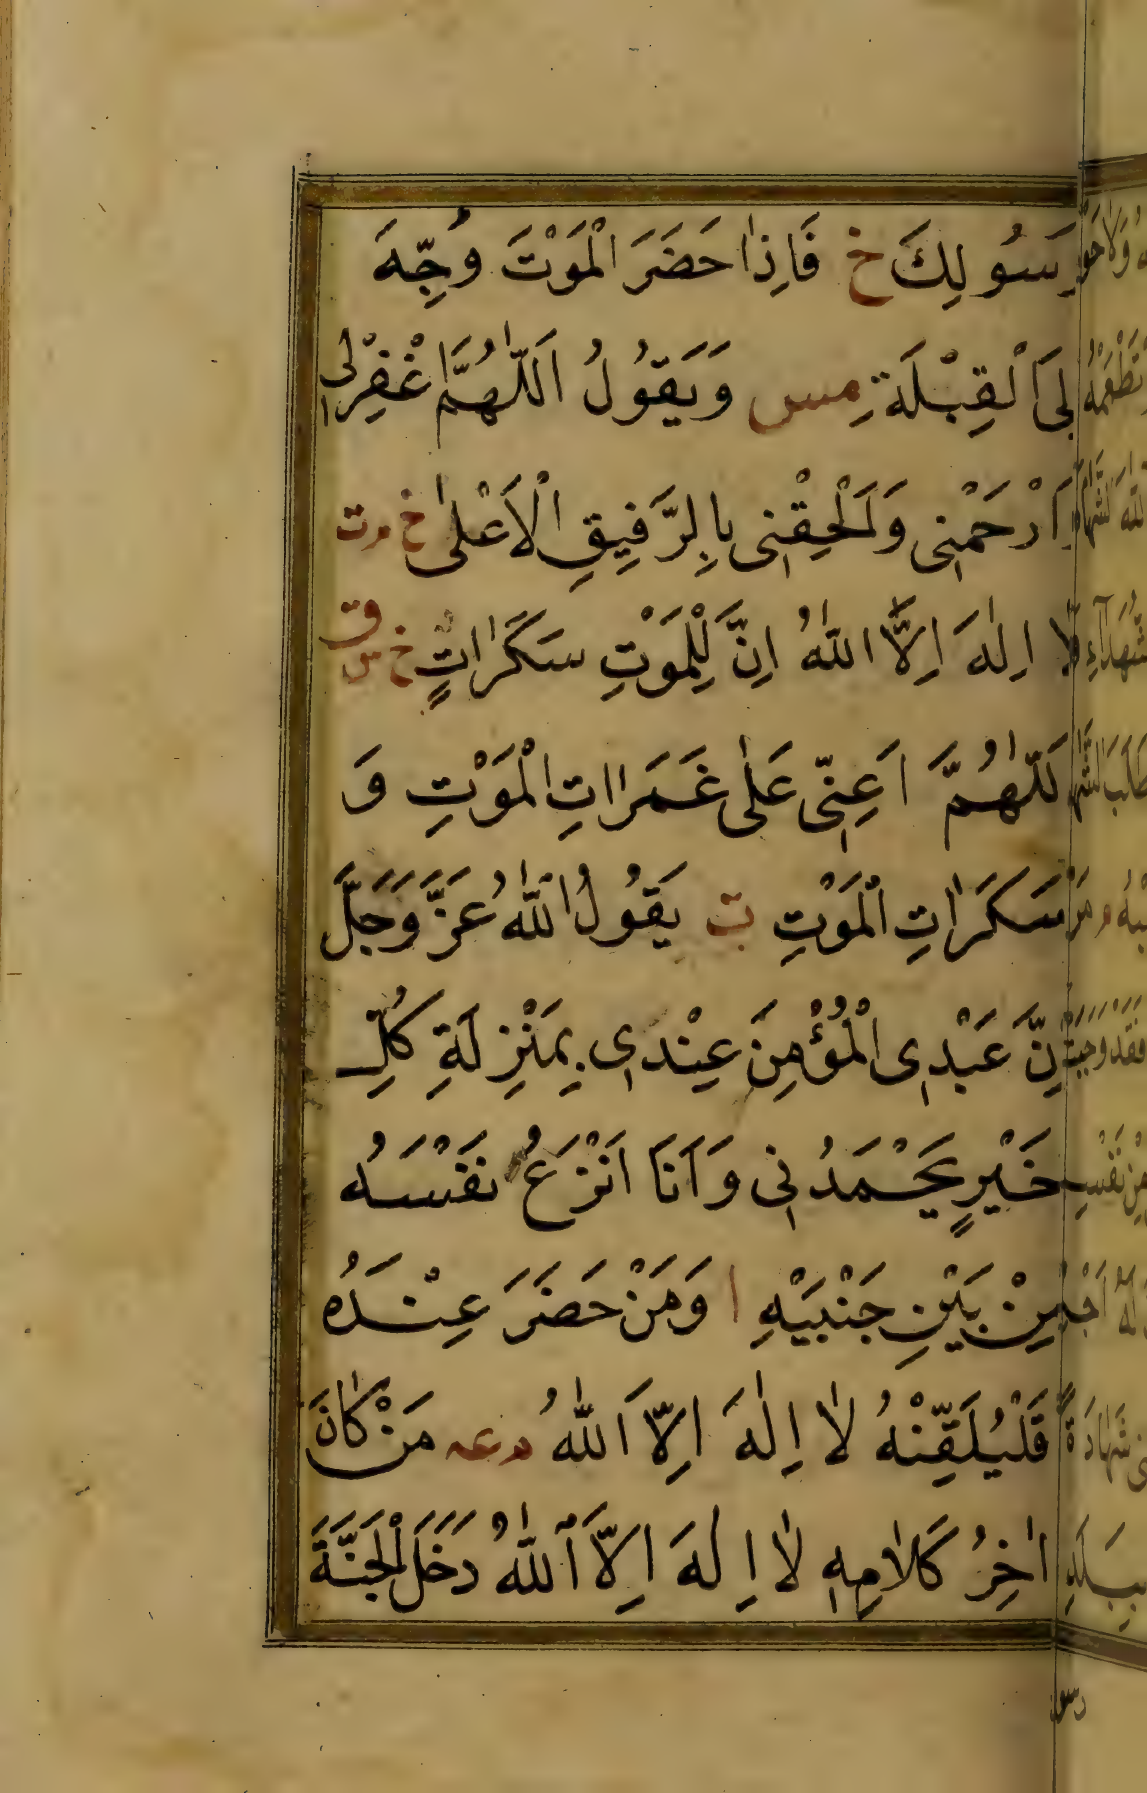 رَسُولِكَ خ فَاِذَا حَضَرَ الْمَوْتَ وُجِّهَ
لَى الْقِبْلَةِ مس وَيَقُولُ اَللّٰهُمَّ اغْفِرْلِى
وَارْحَمْنِى وَاَلْحِقْنِى بِالرَّفِيقِ الْاَعْلٰى خ م ت
لَا اِلٰهَ اِلَّا اللّٰهُ اِنَّ لِلْمَوْتِ سَكَرَاتٍ خ س ق
للّٰهُمَّ اَعِنِّى عَلٰى غَمَرَاتِ الْمَوْتِ وَ
سَكَرَاتِ الْمَوْتِ ت يَقُولُ اللّٰهُ عَزَّ وَجَلَّ
نَّ عَبْدِى الْمُؤْمِنَ عِنْدِى بِمَنْزِلَةِ كُلِّ
خَيْرٍ يَحْمَدُنِى وَاَنَا اَنْزَعُ نَفْسَهُ
مِنْ بَيْنِ جَنْبَيْهِ ا وَمَنْ حَضَرَ عِنْدَهُ
فَلْيُلَقِّنْهُ لَا اِلٰهَ اِلَّا اللّٰهُ م عه مَنْ كَانَ
اٰخِرُ كَلَامِهِ لَا اِلٰهَ اِلَّا اللّٰهُ دَخَلَ الْجَنَّةَ